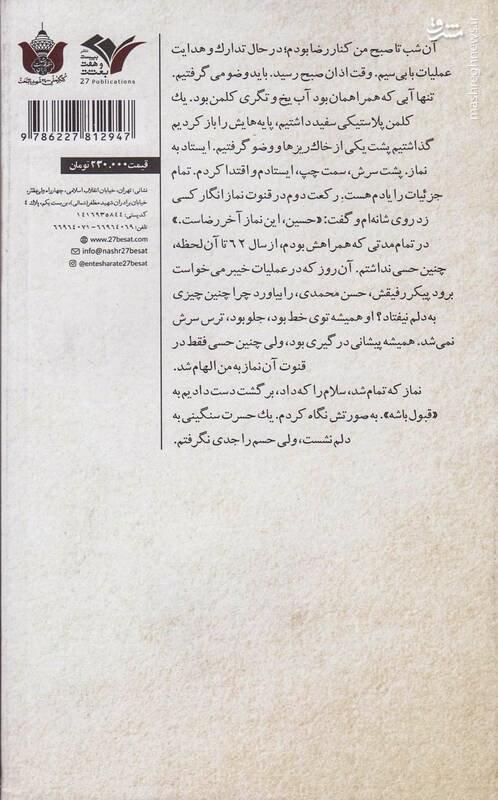 آن شب تا صبح من کنار رضا بودم؛ در حال تدارک و هدایت
عملیات با بی‌سیم. وقت اذان صبح رسید. باید وضو می گرفتیم.
تنها آبی که همراهمان بود آب یخ و تگری کلمن بود. یک
کلمن پلاستیکی سفید داشتیم، پایه‌هایش را باز کردیم
گذاشتیم پشت یکی از خاک‌ریزها و وضو گرفتیم. ایستاد به
نماز. پشت سرش، سمت چپ، ایستادم و اقتدا کردم. تمام
جزئیات را یادم هست. رکعت دوم در قنوت نماز انگار کسی
زد روی شانه‌ام و گفت: «حسین، این نماز آخر رضاست.»
در تمام مدتی که همراهش بودم، از سال ۶۲ تا آن لحظه،
چنین حسی نداشتم. آن روز که در عملیات خیبر می خواست
برود پیکر رفیقش، حسن محمدی، را بیاورد چرا چنین چیزی
به دلم نیفتاد؟ او همیشه توی خط بود، جلو بود، ترس سرش
نمی‌شد. همیشه پیشانی درگیری بود، ولی چنین حسی فقط در
قنوت آن نماز به من الهام شد.
نماز که تمام شد، سلام را که داد، برگشت دست دادیم به
«قبول باشه». به صورتش نگاه کردم. یک حسرت سنگینی به
دلم نشست، ولی حسم را جدی نگرفتم.
نشر
بیست
و هفت
بعثت
27 Publications
9 786227 812947
قیمت ۲۳۰.۰۰۰ تومان
نشانی: تهران، خیابان انقلاب اسلامی، چهارراه ولی‌عصر،
خیابان برادران شهید مظفر (شمالی)، بن‌بست یکم، پلاک ۴
کدپستی: ۱۴۱۶۹۳۵۸۴۴
تلفن: ۶۶۹۶۴۰۶۹ - ۶۶۹۶۴۰۷۱
www.27besat.com
info@nashr27besat
@entesharate27besat
مشرق
mashreghnews.ir